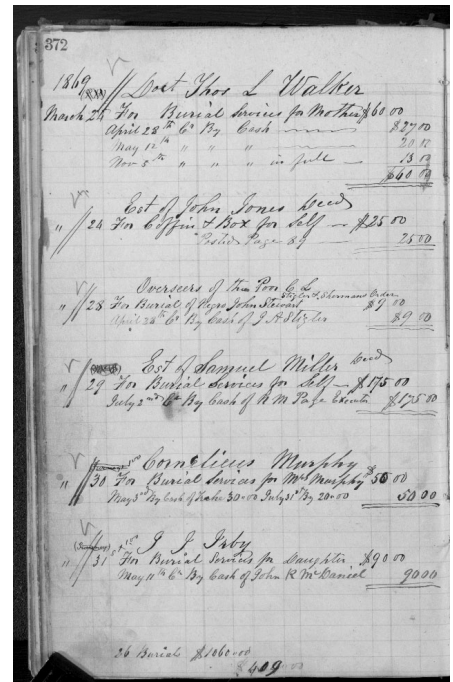 372
1869 // Doct Thos L Walker
March 24 For Burial Services for Mother $60 00
April 28th Cr By Cash $27 00
May 12th " " " 20 00
Nov 5th " " " in full 13 00
$60 00
Est of John Jones Decd
" // 24 For Coffin & Box for Self $25 00
Posted Page 89 25 00
Overseers of the Poor C L
Stigler & Shermans Order
" // 28 For Burial of Negro John Stewart $9 00
April 24th Cr By Cash of J A Stigler $9 00
Est of Samuel Miller Decd
" // 29 For Burial Services for Self $175 00
July 2nd Cr By Cash of R M Page Executor $175 00
Cornelious Murphy
" // 30 For Burial Services for Mrs Murphy $50 00
May 3rd By Cash of 30.00 July 31st By 20.00 50 00
J J Irby
" // 31 For Burial Services for Daughter $90 00
May 11th Cr By Cash of John R McDaniel 90 00
26 Burials $1060.00
$409